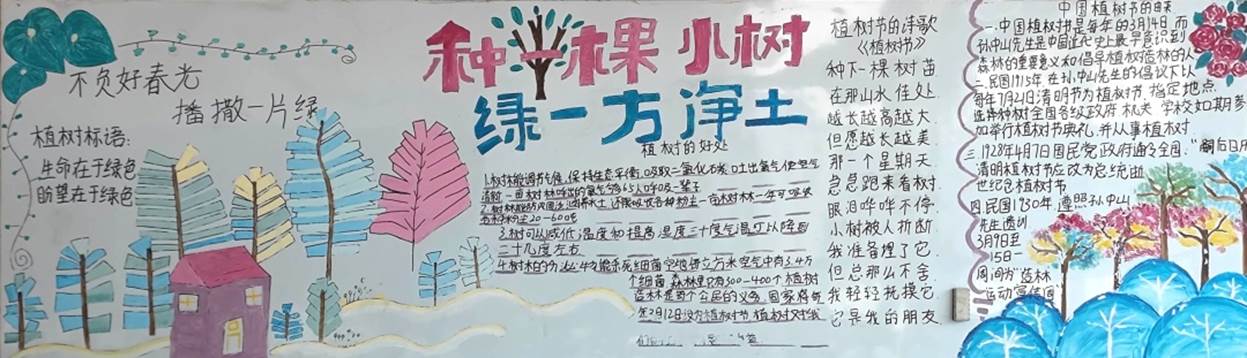 不负好春光
播撒一片绿
植树标语:
生命在于绿色
盼望在于绿色
种一棵小树
绿一方净土
植树的好处
1.树林能调节气候,保持生态平衡,吸收二氧化碳,吐出氧气使空气
清新一亩树林呼出的氧气够65人呼吸一辈子
3.树可以减低温度和提高湿度三十度气温可以降到
二十几度左右
个细菌,森林里只有300-400个植树
造林是每个公民的义务,国家将每
年3月12设为植树节
植树节的诗歌
《植树节》
种下一棵树苗
在那山水佳处
越长越高越大
但愿越长越美
那一个星期天
急急跑来看树
眼泪哗哗不停
小树被人折断
我准备埋了它
但总那么不舍
我轻轻抚摸它
它是我的朋友
中国植树节的由来
一.中国植树节是每年的3月14日,而
孙中山先生是中国近代史上最早意识到
森林的重要意义和倡导植树造林的人
二.民国1915年,在孙中山先生的倡议下以
每年7月21清明节为植树节,指定地点,
选择种树全国各级政府 机关 学校如期参
加举行植树节典礼,并从事植树
三.1928年4月7日国民党政府通令全国,
清明植树节应改为总统逝
世纪念植树节
四民国1930年,遵照孙中山
先生遗训
3月9日至
15日一
周间为造林
运动宣传周